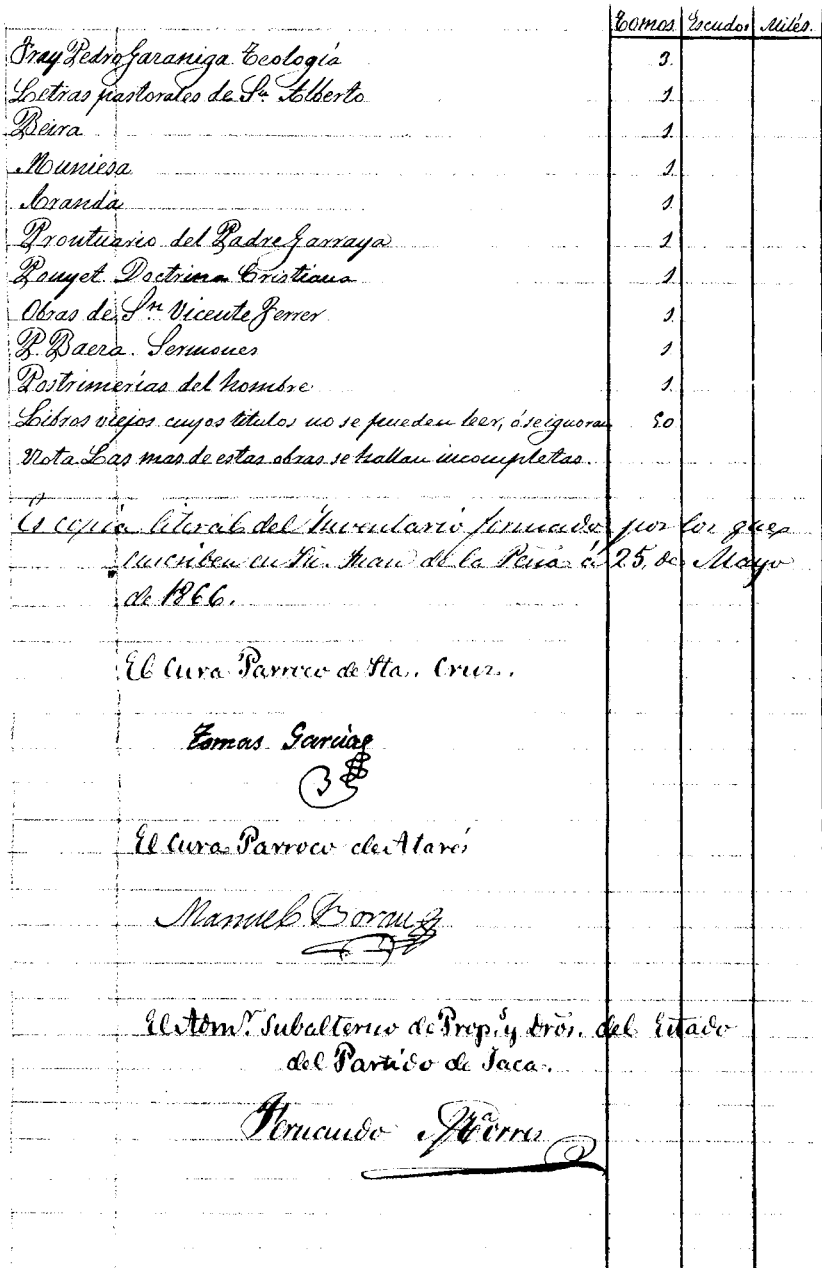 Tomos Escudos Milés.
Fray Pedro Garaniga Teología 3.
Letras pastorales de Sn. Alberto 1
Beira 1
Muniesa 1
Aranda 1
Prontuario del Padre Larraya 1
Pouyet Doctrina Cristiana 1
Obras de Sn. Vicente Ferrer 1
P. Baeza. Sermones 1
Postrimerías del hombre 1
Libros viejos cuyos titulos no se pueden leer, ó se ignoran 50
Nota Las mas de estas obras se hallan incompletas.
Es copia literal del Inventario formado por los que
suscriben en Sn. Juan de la Peña á 25, de Mayo
de 1866.
El Cura Parroco de Sta. Cruz.
Tomas Garcia
El Cura Parroco de Atarés
Manuel Borau
El Admr. Subalterno de Props. y Dros. del Estado
del Partido de Jaca.
Fernando